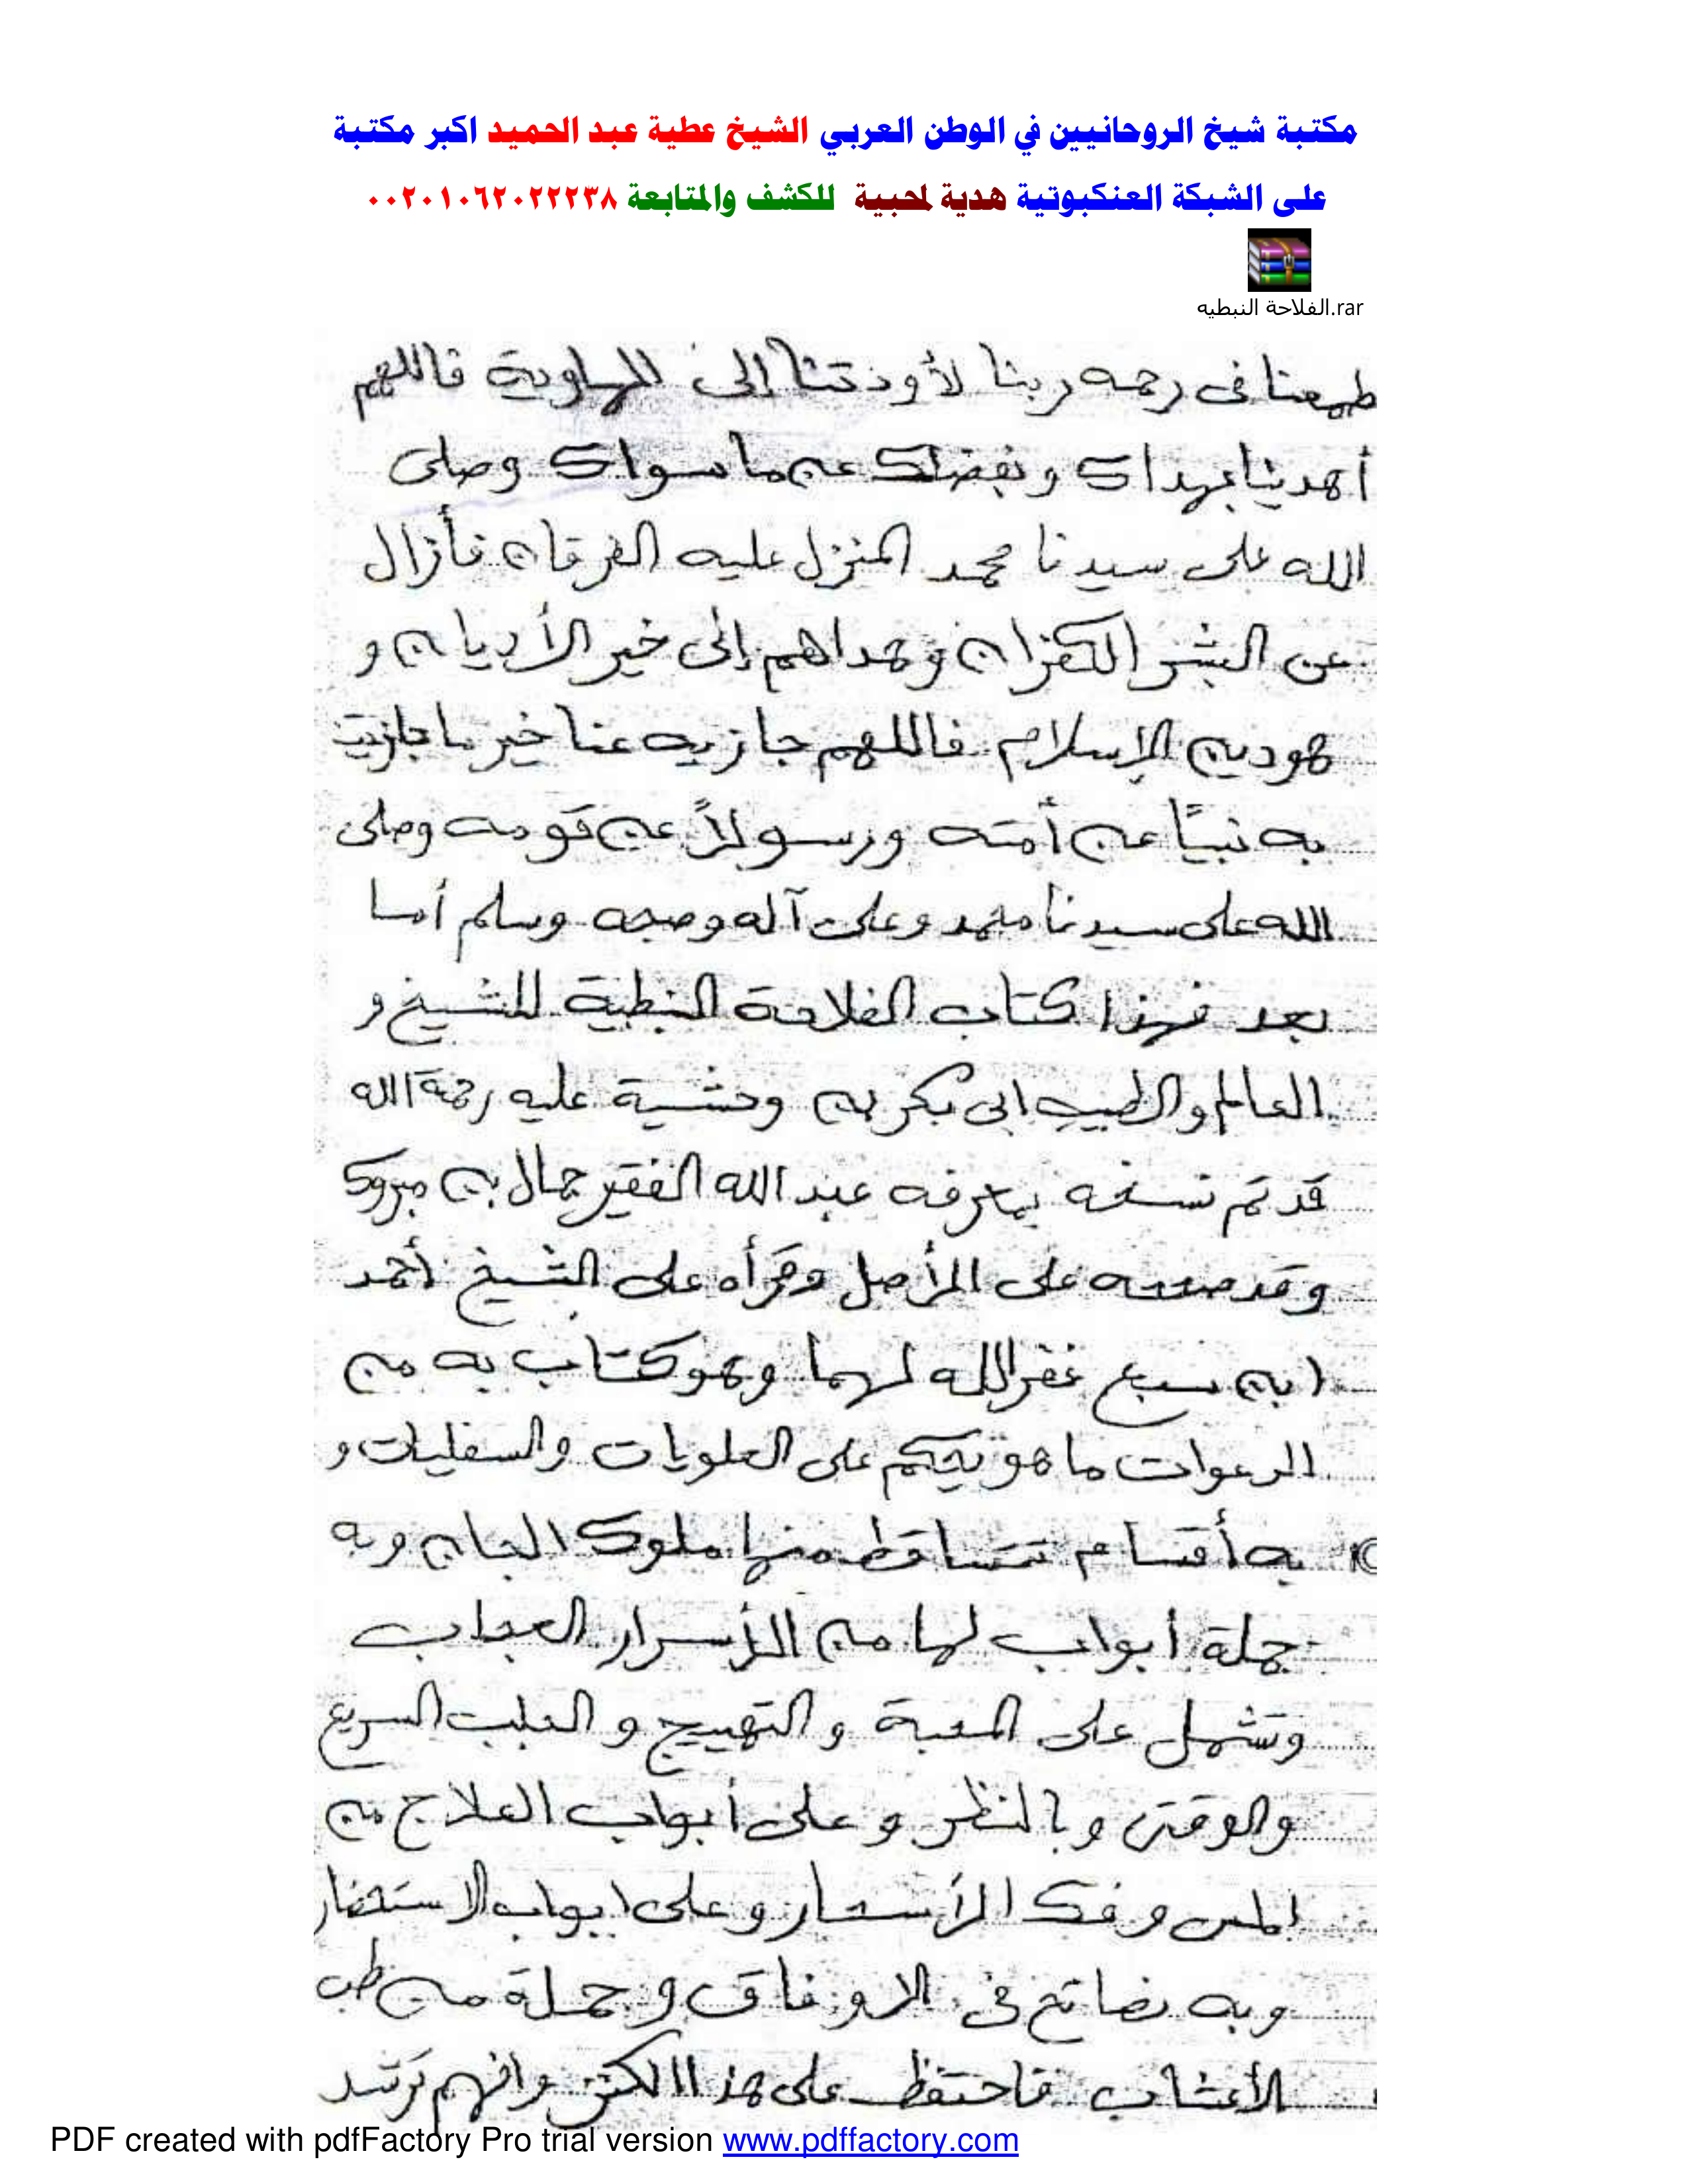 مكتبة شيخ الروحانيين في الوطن العربي الشيخ عطية عبد الحميد اكبر مكتبة
على الشبكة العنكبوتية هدية لمحبية للكشف والمتابعة ٠٠٢٠١٠٦٢٠٢٢٢٣٨
الفلاحة النبطيه.rar
طمعنا فى رحمه ربنا لأودتنا إلى للهاوية فاللهم
أهدينا بهداك وبفضلك عن ما سواك وصلى
الله على سيدنا محمد المنزل عليه الفرقان فأزال
عن البشر الكفران وهداهم إلى خير الأديان و
هو دين الإسلام فاللهم جازيه عنا خير ما جازيت
به نبيًا عن أمته ورسولاً عن قومه وصلى
الله على سيدنا محمد وعلى آله وصحبه وسلم أما
بعد فهذا كتاب الفلاحة النبطية للشيخ و
العالم والطبيب ابى بكر بن وحشية عليه رحمة الله
قد تم نسخه بمعرفه عبد الله الفقير جمال بن مبروك
وقد صححه على الأصل وقرأه على الشيخ أحمد
ابن سبع غفر الله لهما وهو كتاب به من
الدعوات ما هو يحكم على العلويات والسفليات و
به أقسام تتساقط منها ملوك الجان وبه
جملة أبواب لها من الأسرار العجاب
وتشمل على المحبة والتهييج و الجلب السريع
والوقتى وبالنظر و على أبواب العلاج من
المس وفك الأسحار وعلى ابواب الاستحضار
وبه نصائح فى الاوفاق وجملة من طب
الأعشاب فاحتفظ على هذا الكنز وافهم ترشد
PDF created with pdfFactory Pro trial version www.pdffactory.com